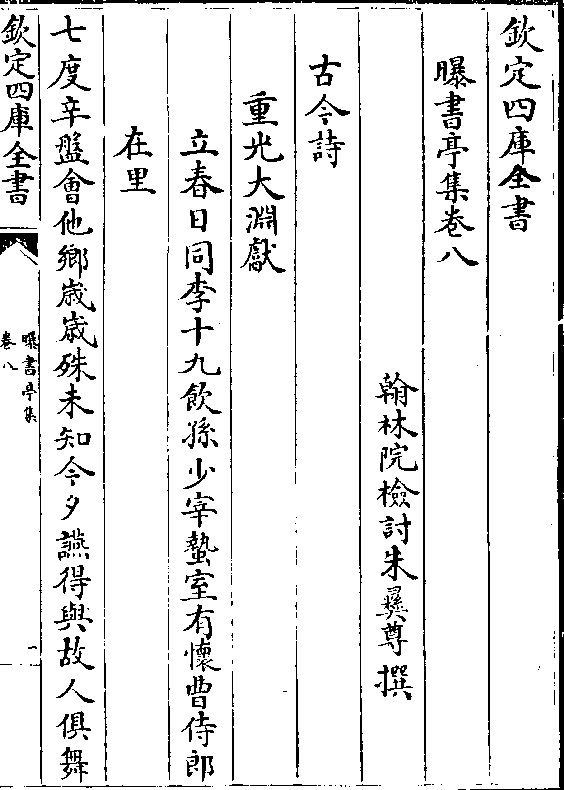 欽定四庫全書
曝書亭集卷八
翰林院檢討朱彞尊撰
古今詩
重光大淵獻
立春日同李十九飲孫少宰蟄室有懷曹侍郎
在里
七度辛盤會他鄉歲歲殊未知今夕讌得與故人俱舞
欽定四庫全書
曝書亭集
卷八
一